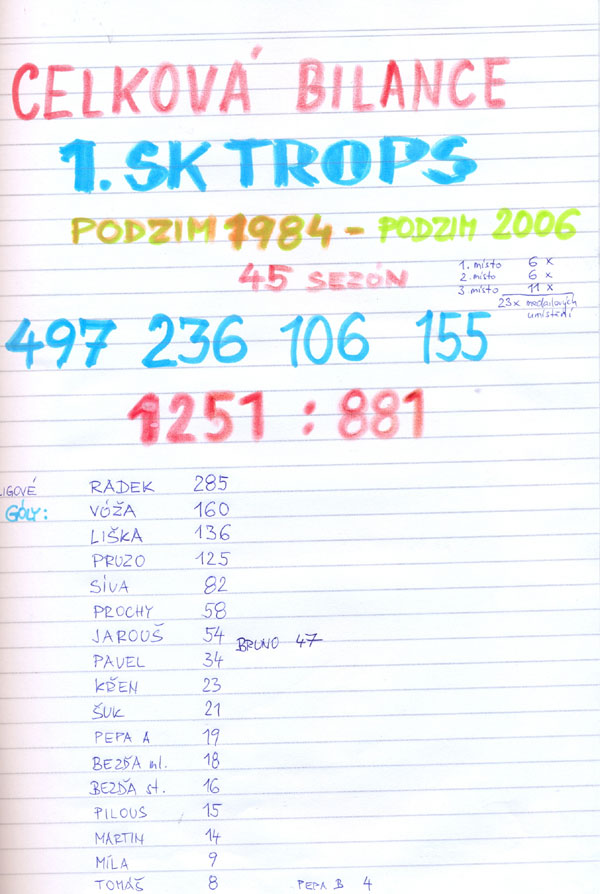 CELKOVÁ BILANCE
1. SK TROPS
PODZIM 1984 - PODZIM 2006
45 SEZÓN
1. místo 6 x
2. místo 6 x
3 místo 11 x
23x medailových
umístění
497 236 106 155
1251 : 881
LIGOVÉ
GÓLY:
RADEK 285
VÓŽA 160
LIŠKA 136
PRUZO 125
SÍVA 82
PROCHY 58
JAROUŠ 54 BRUNO 47
PAVEL 34
KŘEN 23
ŠUK 21
PEPA A 19
BEZĎA ml. 18
BEZĎA st. 16
PILOUS 15
MARTIN 14
MÍLA 9
TOMÁŠ 8 PEPA B 4